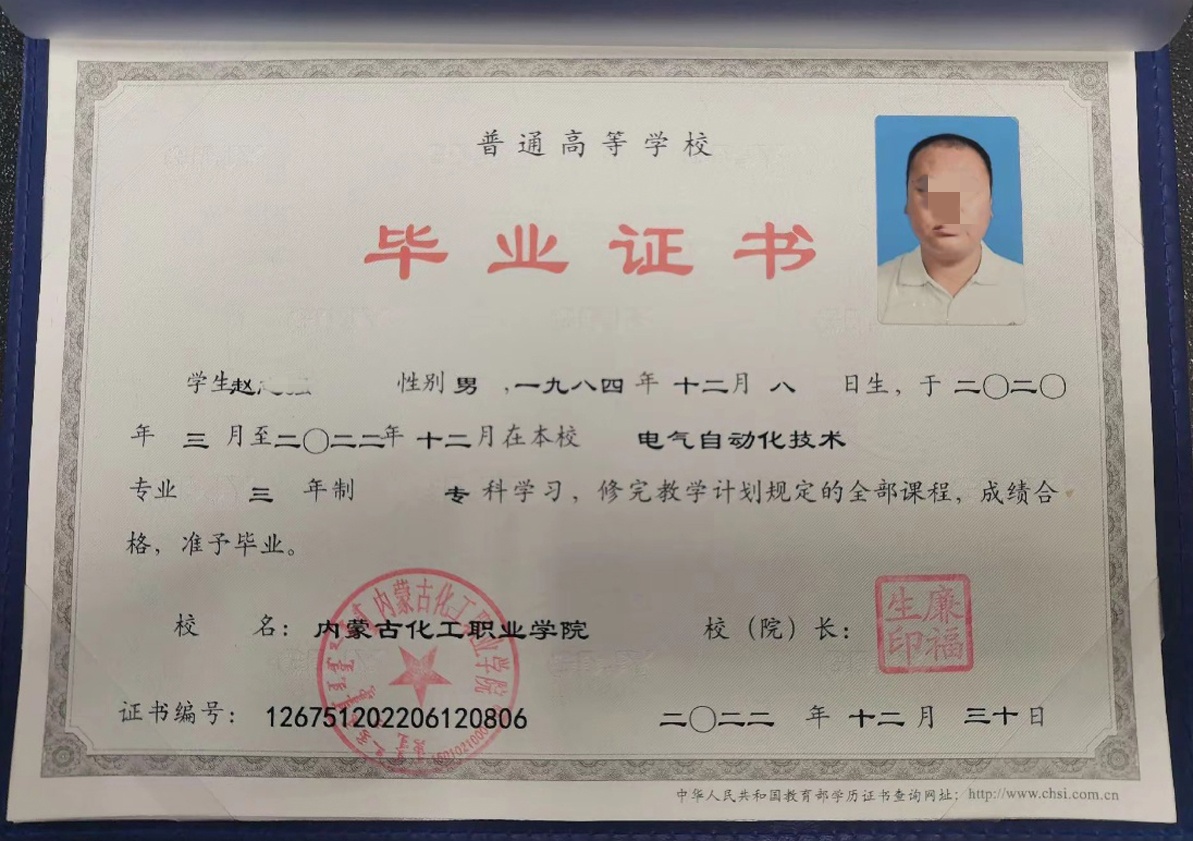 普通高等学校
毕业证书
学生赵 性别 男 ,一九八四年 十二月 八 日生，于 二〇二〇
年 三 月至二〇二二年 十二月在本校 电气自动化技术
专业 三 年制 专 科学习，修完教学计划规定的全部课程，成绩合
格，准予毕业。
内蒙古化工职业学院
校 名：内蒙古化工职业学院 校（院）长：
廉福
生印
证书编号：126751202206120806 二〇二二 年 十二 月 三十日
中华人民共和国教育部学历证书查询网址：http://www.chsi.com.cn